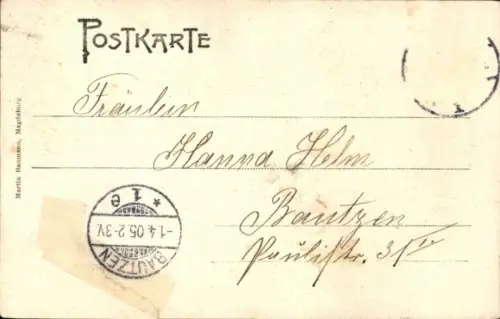 POSTKARTE
Fräulein
Hanna Helm
Bautzen
Paulistr. 31
Martin Baumann, Magdeburg
* 1 e
-1.4.05.2-3V.
BAUTZEN